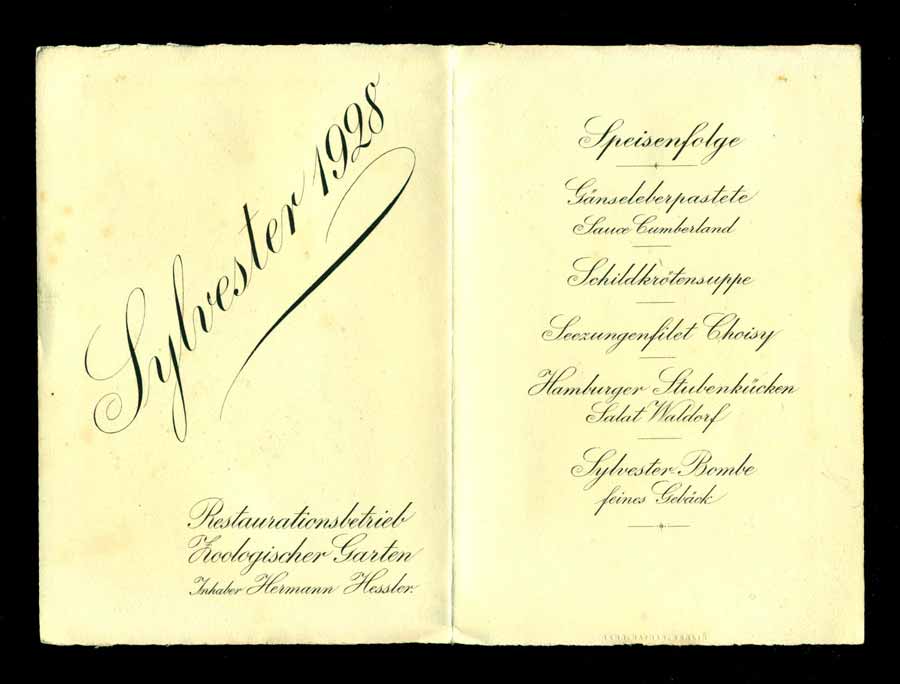 Sylvester 1928
Restaurationsbetrieb
Zoologischer Garten
Inhaber Hermann Hessler.
Speisenfolge
Gänseleberpastete
Sauce Cumberland
Schildkrötensuppe
Seezungenfilet Choisy
Hamburger Stubenkücken
Salat Waldorf
Sylvester-Bombe
feines Gebäck